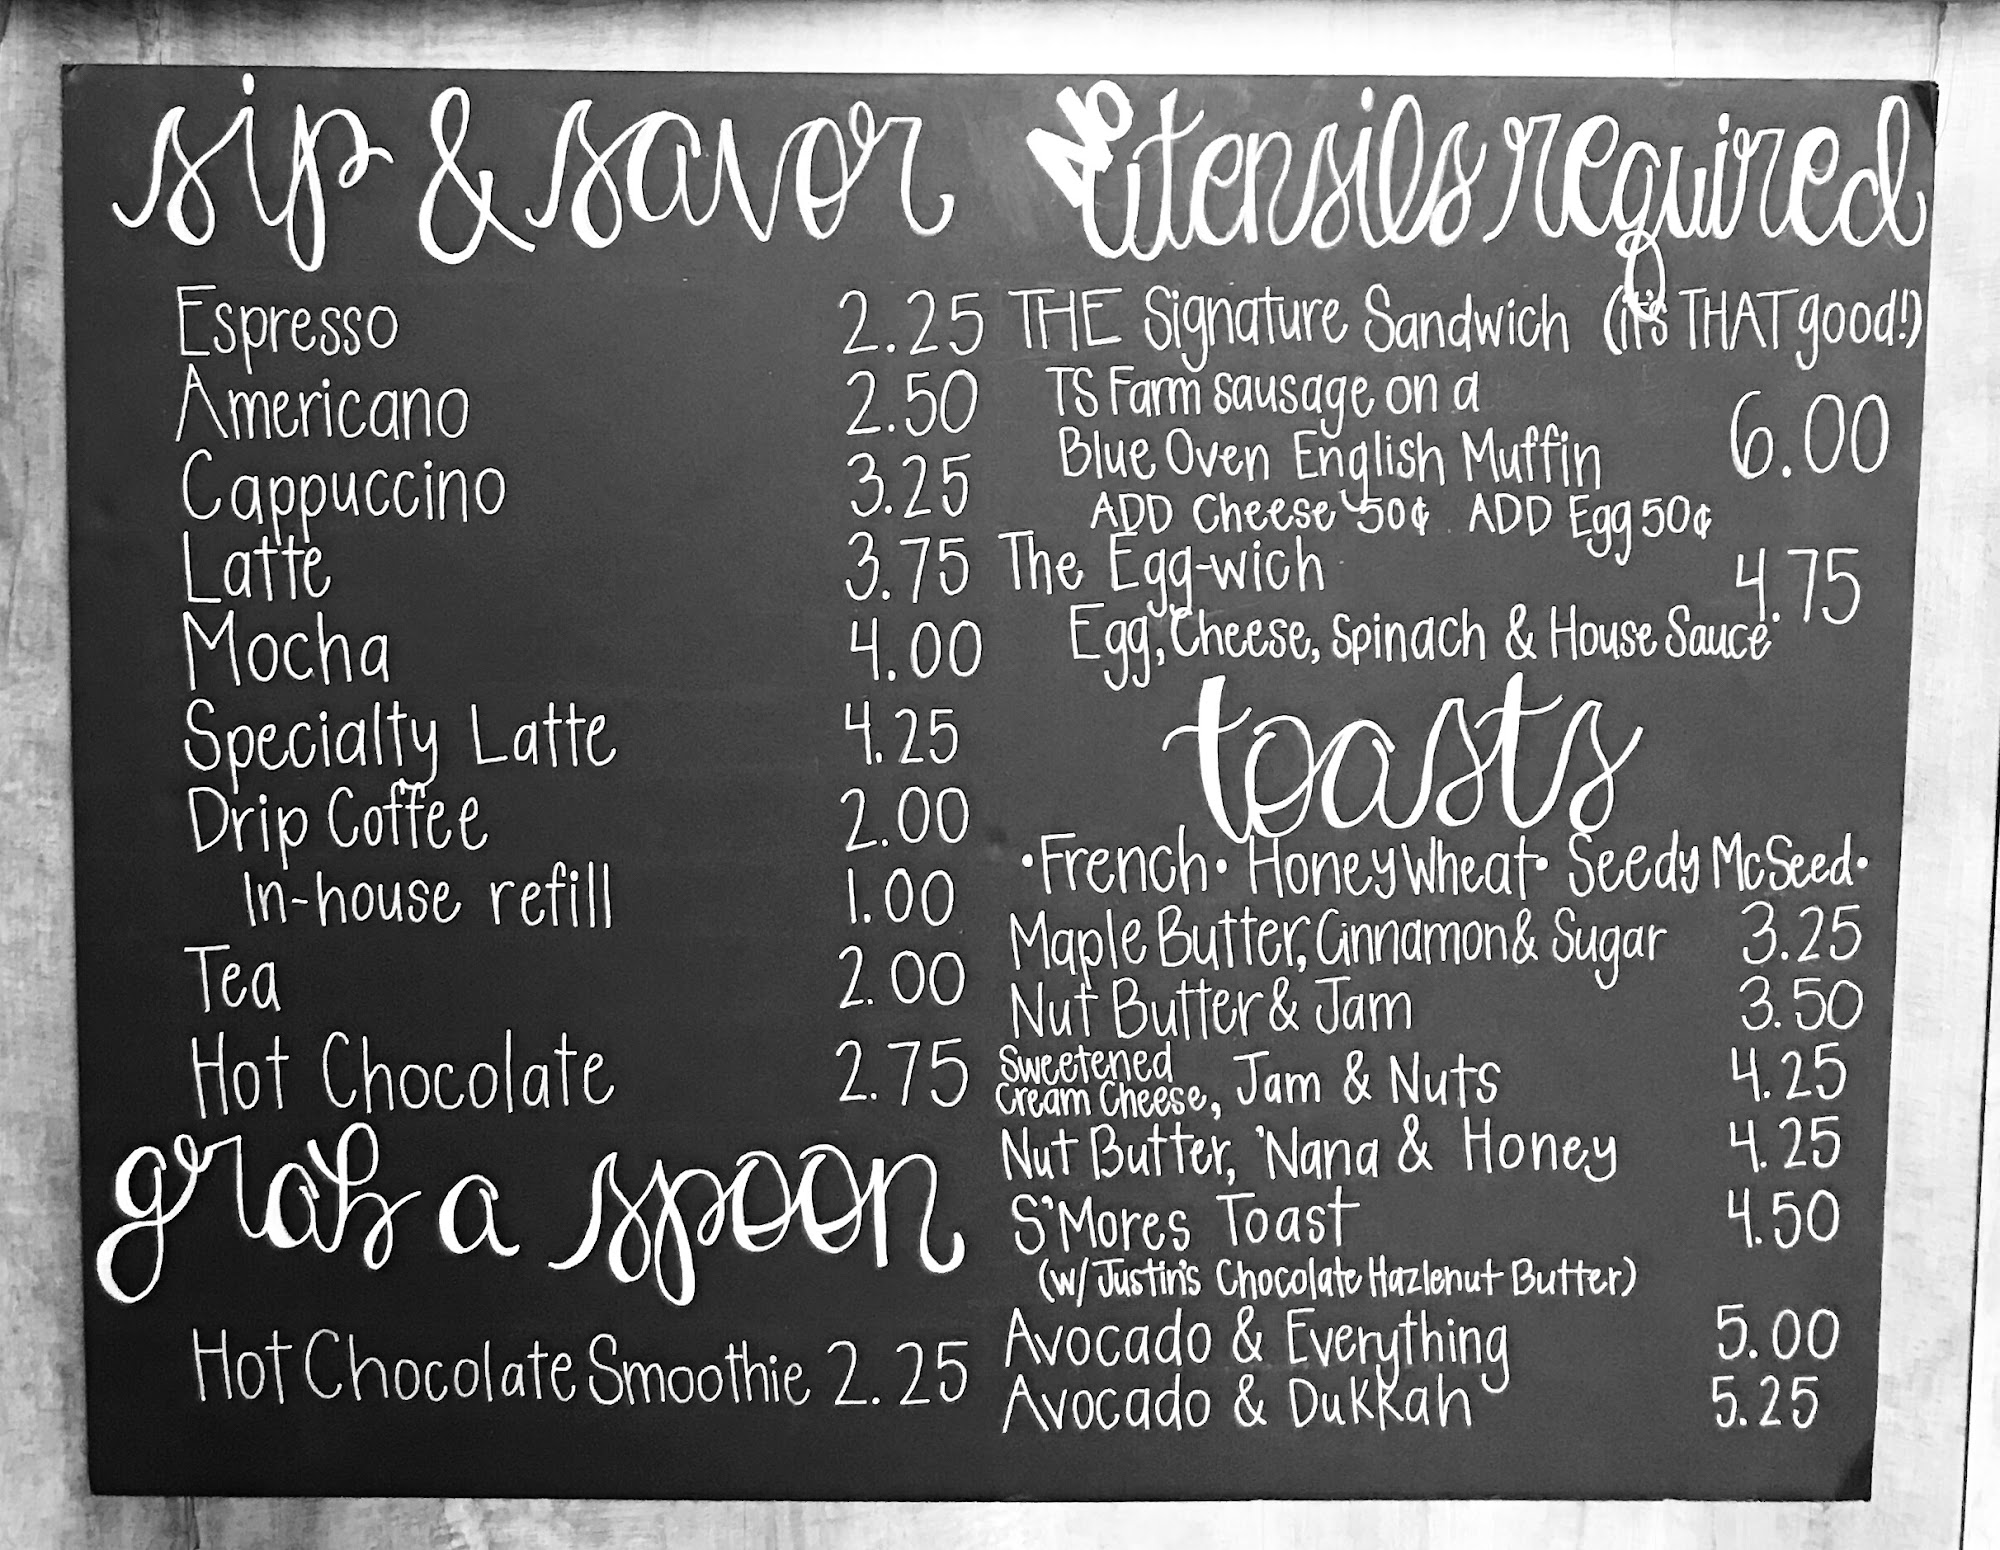 sip & savor
Espresso 2.25
Americano 2.50
Cappuccino 3.25
Latte 3.75
Mocha 4.00
Specialty Latte 4.25
Drip Coffee 2.00
In-house refill 1.00
Tea 2.00
Hot Chocolate 2.75
grab a spoon
Hot Chocolate Smoothie 2.25
No utensils required
THE Signature Sandwich (it's THAT good!)
TS Farm sausage on a
Blue Oven English Muffin 6.00
ADD Cheese 50¢ ADD Egg 50¢
The Egg-wich 4.75
Egg, Cheese, Spinach & House Sauce
toasts
•French• Honey Wheat• Seedy McSeed•
Maple Butter, Cinnamon & Sugar 3.25
Nut Butter & Jam 3.50
Sweetened
Cream Cheese, Jam & Nuts 4.25
Nut Butter, 'Nana & Honey 4.25
S'Mores Toast 4.50
(w/ Justin's Chocolate Hazlenut Butter)
Avocado & Everything 5.00
Avocado & Dukkah 5.25